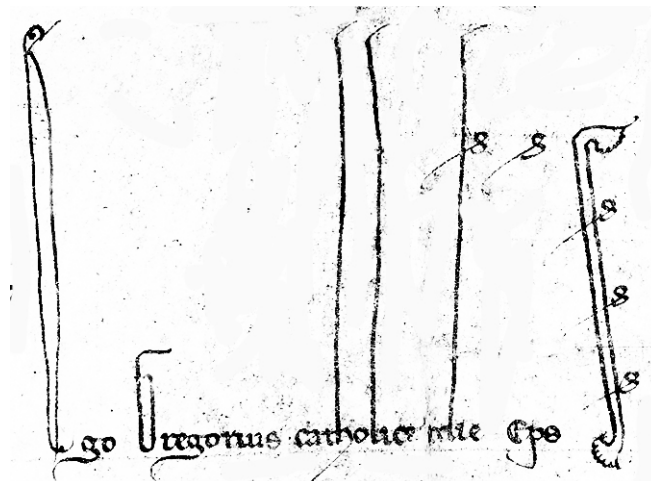 Ego Gregorius catholice ecclie Eps